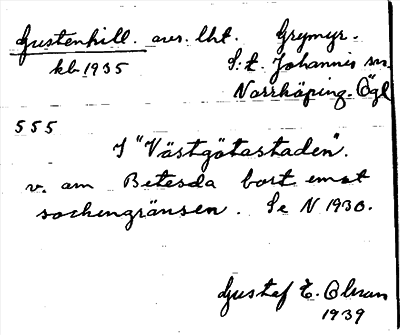 Gustenhill avs. lht. Grymyr.
kb 1935 S:t. Johannis sn
Norrköping. Ögl
555
I "Västgötastaden".
v. om Betesda bort emot
sockengränsen. Se N 1930.
Gustaf E. Olsson
1939